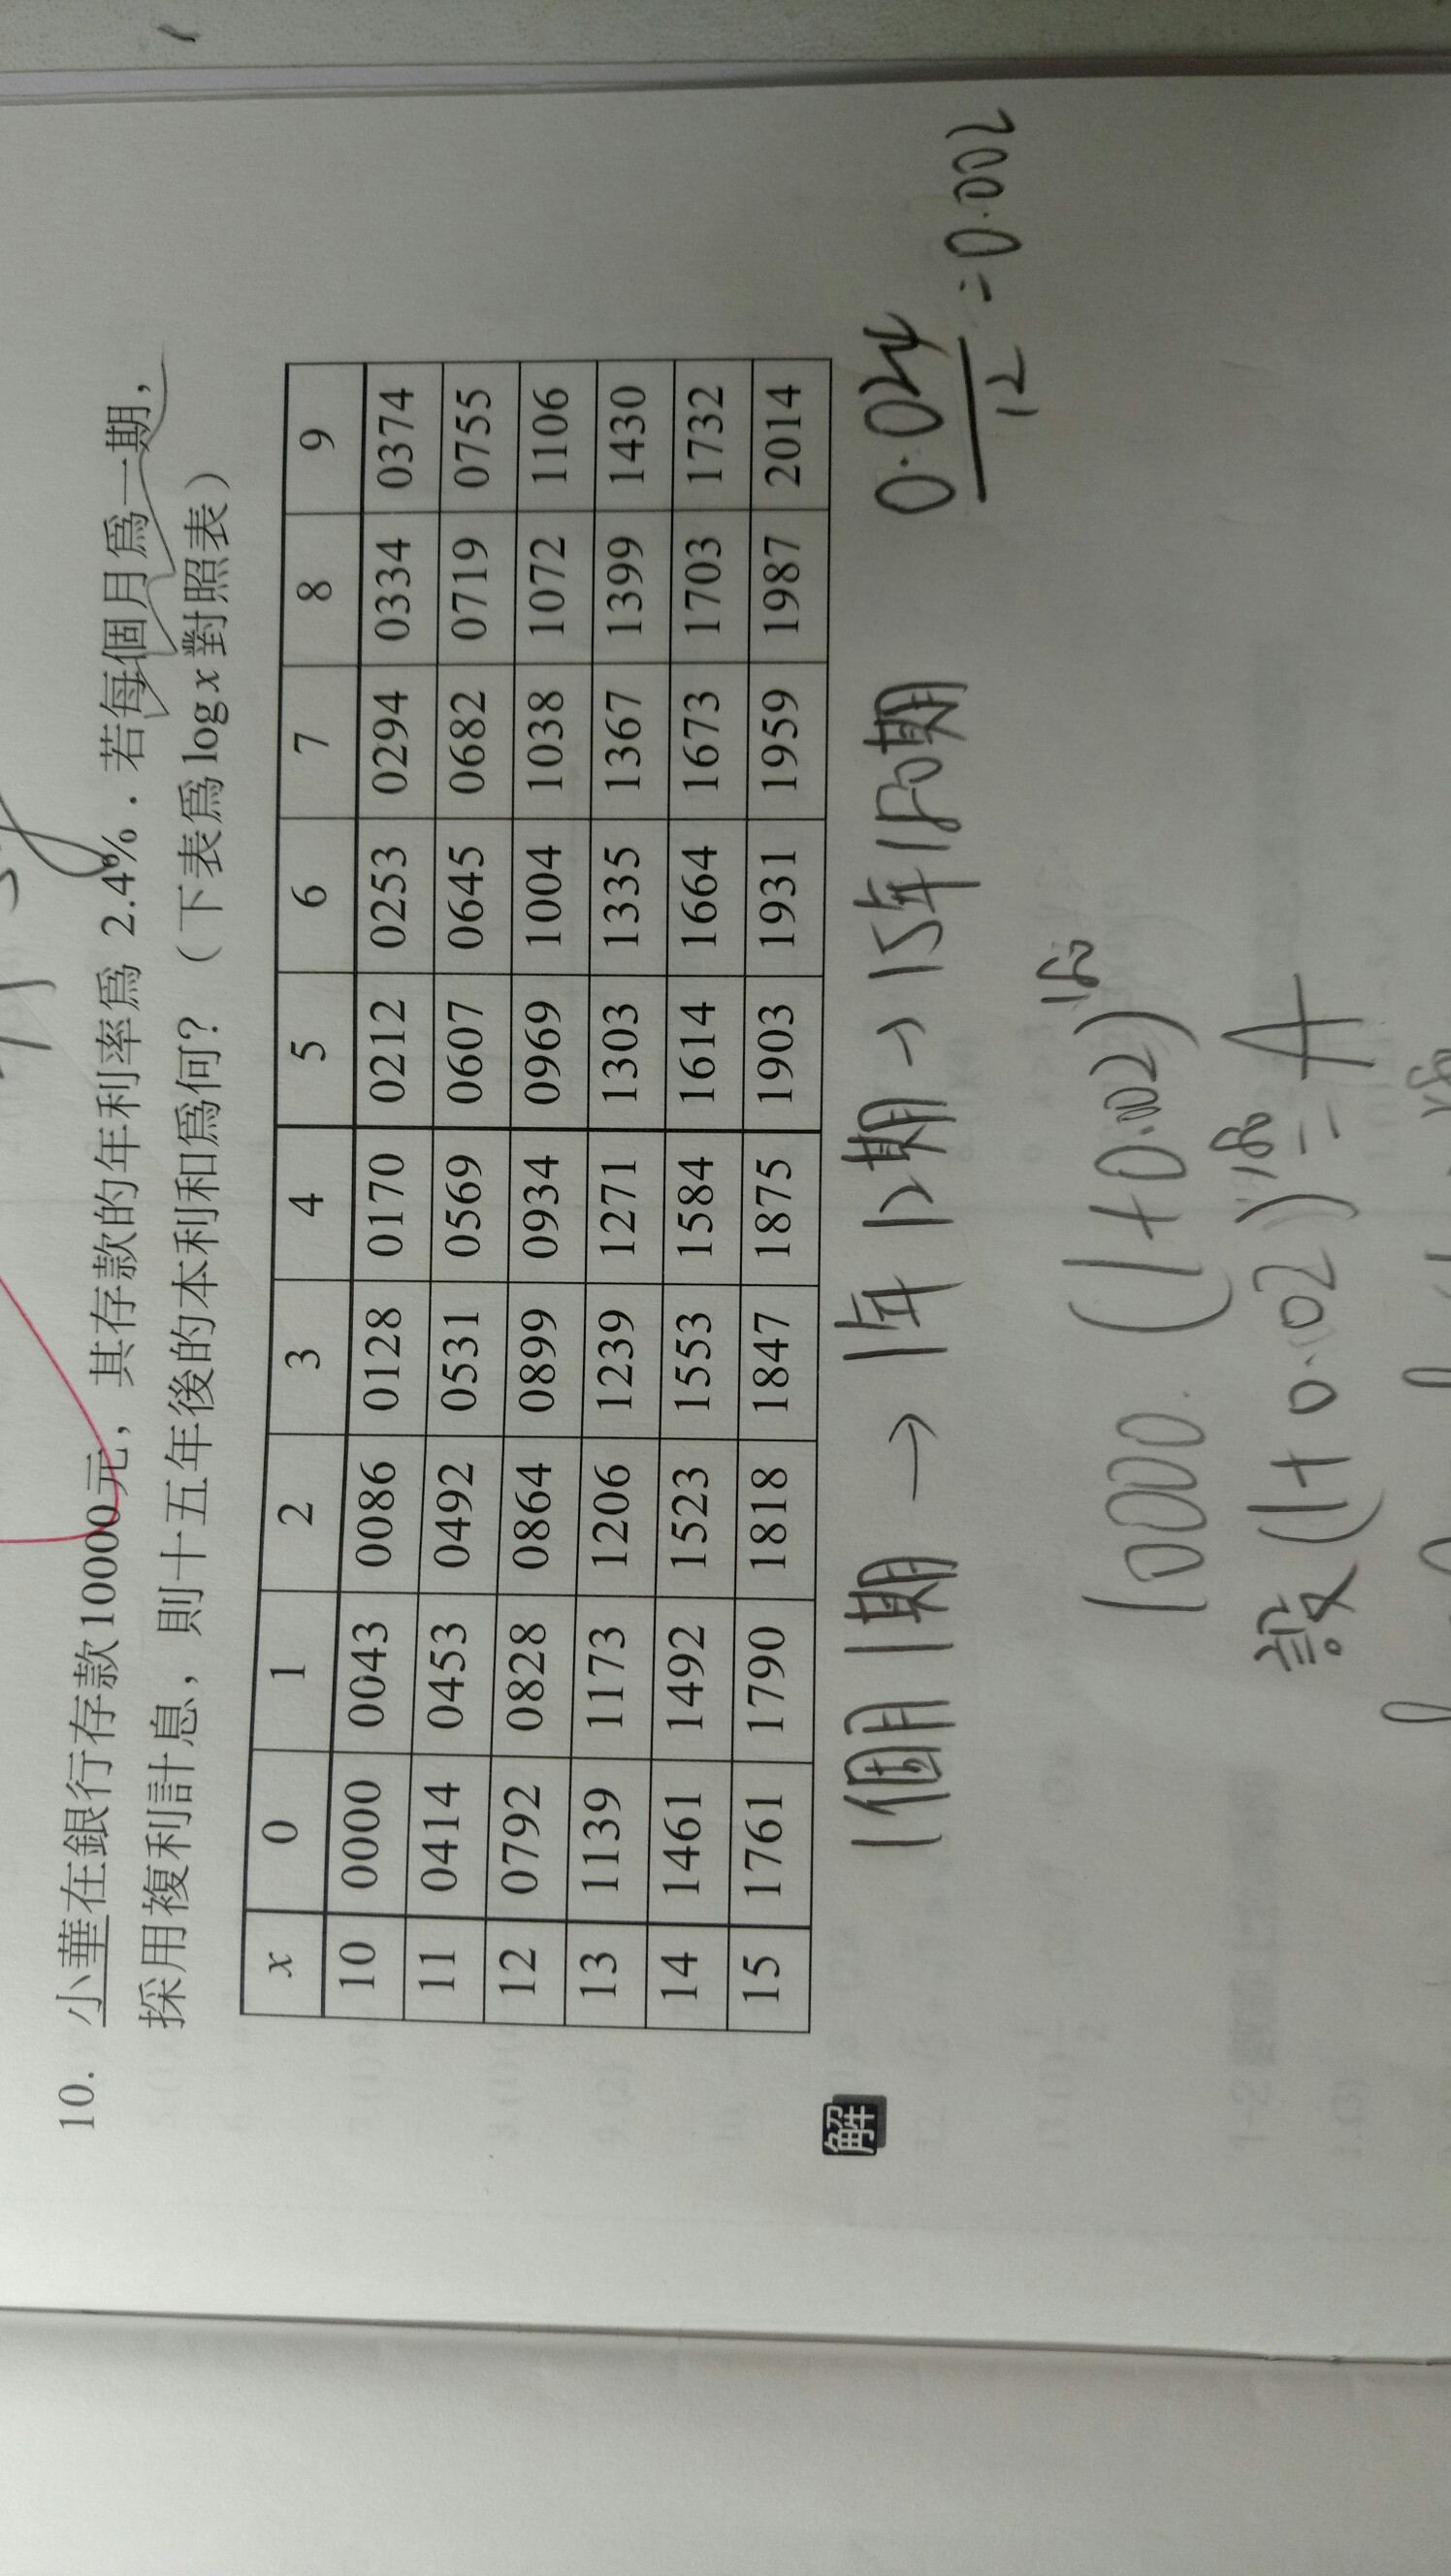 10. 小華在銀行存款10000元，其存款的年利率爲 2.4%．若每個月爲一期，
採用複利計息，則十五年後的本利和爲何？（下表爲log x 對照表）
x 0 1 2 3 4 5 6 7 8 9
10 0000 0043 0086 0128 0170 0212 0253 0294 0334 0374
11 0414 0453 0492 0531 0569 0607 0645 0682 0719 0755
12 0792 0828 0864 0899 0934 0969 1004 1038 1072 1106
13 1139 1173 1206 1239 1271 1303 1335 1367 1399 1430
14 1461 1492 1523 1553 1584 1614 1664 1673 1703 1732
15 1761 1790 1818 1847 1875 1903 1931 1959 1987 2014
解
1個月1期 → 1年12期 → 15年180期 0.024/12 = 0.002
10000.(1+0.002)^180
設(1+0.002)^180 = A